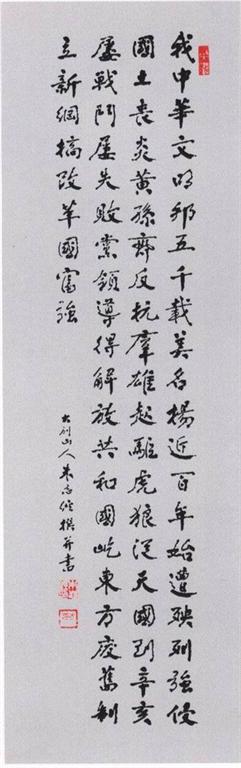 我中華文明邦五千載美名楊近百年始遭殃列強侵
國土丧炎黃孫齊反抗羣雄起駈虎狼從天國到辛亥
屡戰鬥屡失敗黨領導得解放共和國屹東方廢舊制
立新綱搞改革國富強
山人朱志修撰并書